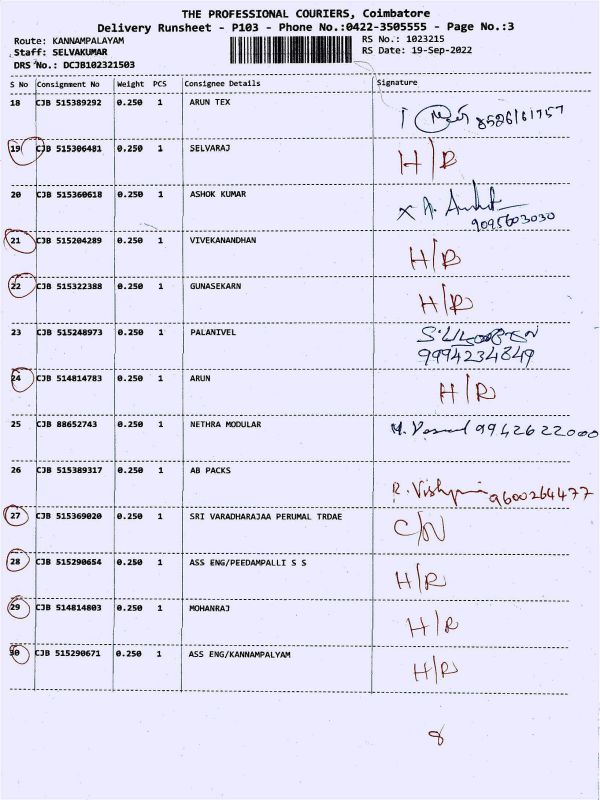 THE PROFESSIONAL COURIERS, Coimbatore
Delivery Runsheet - P103 - Phone No.:0422-3505555 - Page No.:3
Route: KANNAMPALAYAM RS No.: 1023215
Staff: SELVAKUMAR RS Date: 19-Sep-2022
DRS No.: DCJB102321503
S No Consignment No Weight PCS Consignee Details Signature
18 CJB 515389292 0.250 1 ARUN TEX 8526161757
19 CJB 515306481 0.250 1 SELVARAJ H/R
20 CJB 515360618 0.250 1 ASHOK KUMAR
9095603030
21 CJB 515204289 0.250 1 VIVEKANANDHAN H/R
22 CJB 515322388 0.250 1 GUNASEKARN H/R
23 CJB 515248973 0.250 1 PALANIVEL
9994234849
24 CJB 514814783 0.250 1 ARUN H/R
25 CJB 88652743 0.250 1 NETHRA MODULAR 9942622000
26 CJB 515389317 0.250 1 AB PACKS
9600264477
27 CJB 515369020 0.250 1 SRI VARADHARAJAA PERUMAL TRDAE C/N
28 CJB 515290654 0.250 1 ASS ENG/PEEDAMPALLI S S H/R
29 CJB 514814803 0.250 1 MOHANRAJ H/R
30 CJB 515290671 0.250 1 ASS ENG/KANNAMPALYAM H/R
8